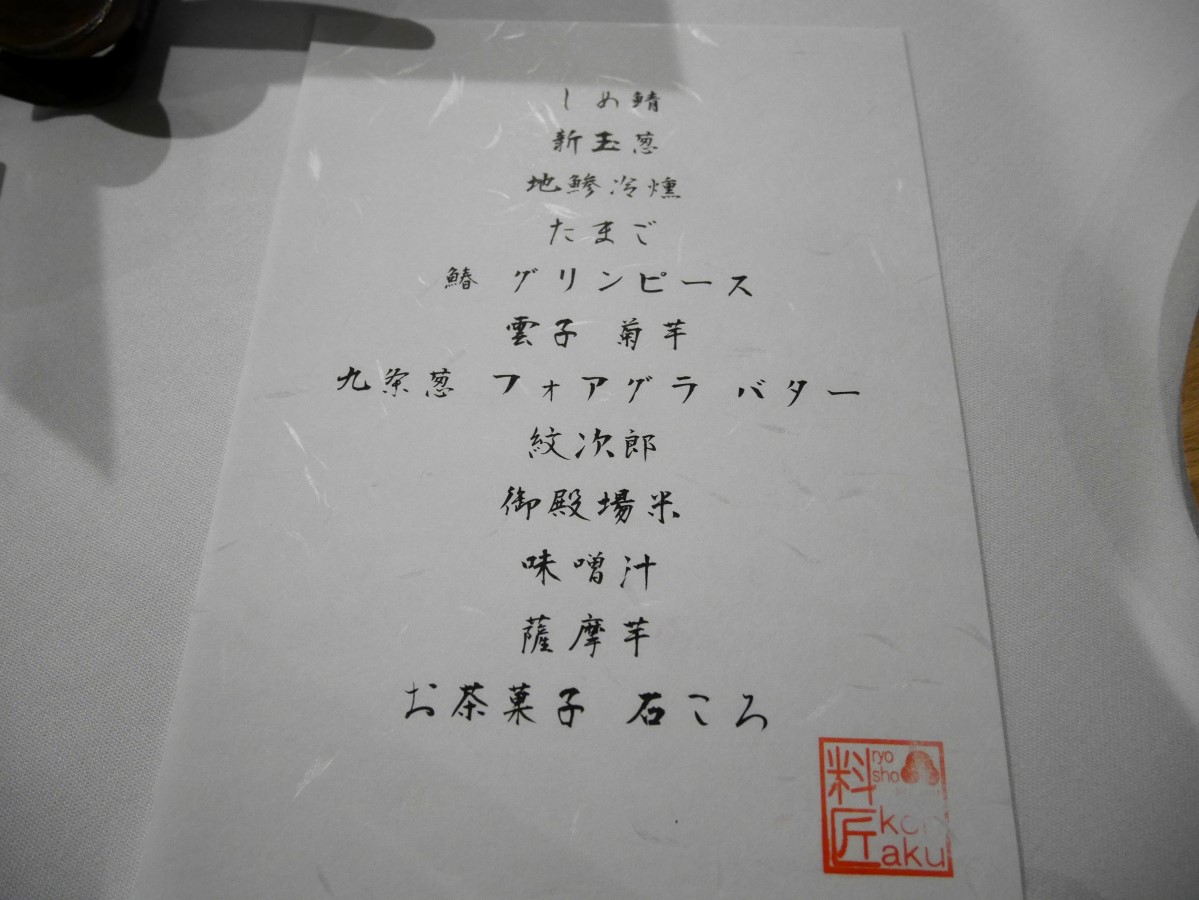 しめ鯖
新玉葱
地鯵冷燻
たまご
鰆 グリンピース
雲子 菊芋
九条葱 フォアグラ バター
紋次郎
御殿場米
味噌汁
薩摩芋
お茶菓子 石ころ
料匠
ryo
sho
aku